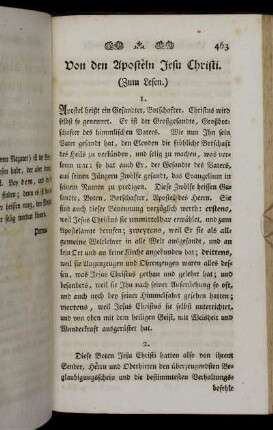 463
Von den Aposteln Jesu Christi.
(Zum Lesen.)
1.
Apostel heißt ein Gesandter, Botschafter. Christus wird
selbst so genennet. Er ist der Großgesandte, Großbot-
schafter des himmlischen Vaters. Wie nun Ihn sein
Vater gesandt hat, den Elenden die fröhliche Botschaft
des Heils zu verkünden, und selig zu machen, was ver-
loren war: so hat auch Er, der Gesandte des Vaters,
aus seinen Jüngern Zwölfe gesandt, das Evangelium in
seinem Namen zu predigen. Diese Zwölfe heissen Ge-
sandte, Boten, Botschafter, Apostel des Herrn. Sie
sind auch dieser Benennung vorzüglich werth: erstens,
weil Jesus Christus sie unmittelbar erwählet, und zum
Apostelamte berufen; zweytens, weil Er sie als all-
gemeine Weltlehrer in alle Welt ausgesandt, und an
kein Ort und an keine Kirche angebunden hat; drittens,
weil sie Augenzeugen und Ohrenzeugen waren alles des-
sen, was Jesus Christus gethan und gelehrt hat; und
besonders, weil sie Ihn nach seiner Auferstehung so oft,
und auch noch bey seiner Himmelfahrt gesehen hatten;
viertens, weil Jesus Christus sie selbst unterrichtet,
und von oben mit dem heiligen Geist, mit Weisheit und
Wunderkraft ausgerüstet hat.
2.
Diese Boten Jesu Christi hatten also von ihrem
Sender, Herrn und Oberhirten den überzeugendsten Be-
glaubigungsschein und die bestimmtesten Verhaltungs-
befehle